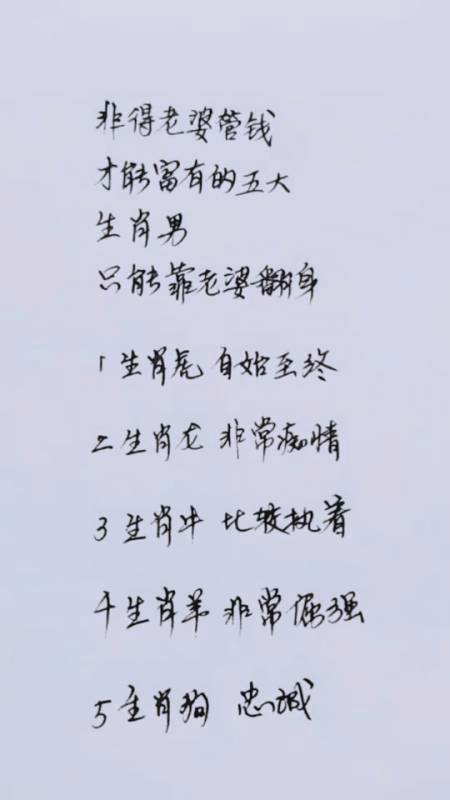 非得老婆管钱
才能富有的五大
生肖男
只能靠老婆翻身
1 生肖虎 自始至终
2 生肖龙 非常痴情
3 生肖牛 比较执着
4 生肖羊 非常倔强
5 生肖狗 忠诚